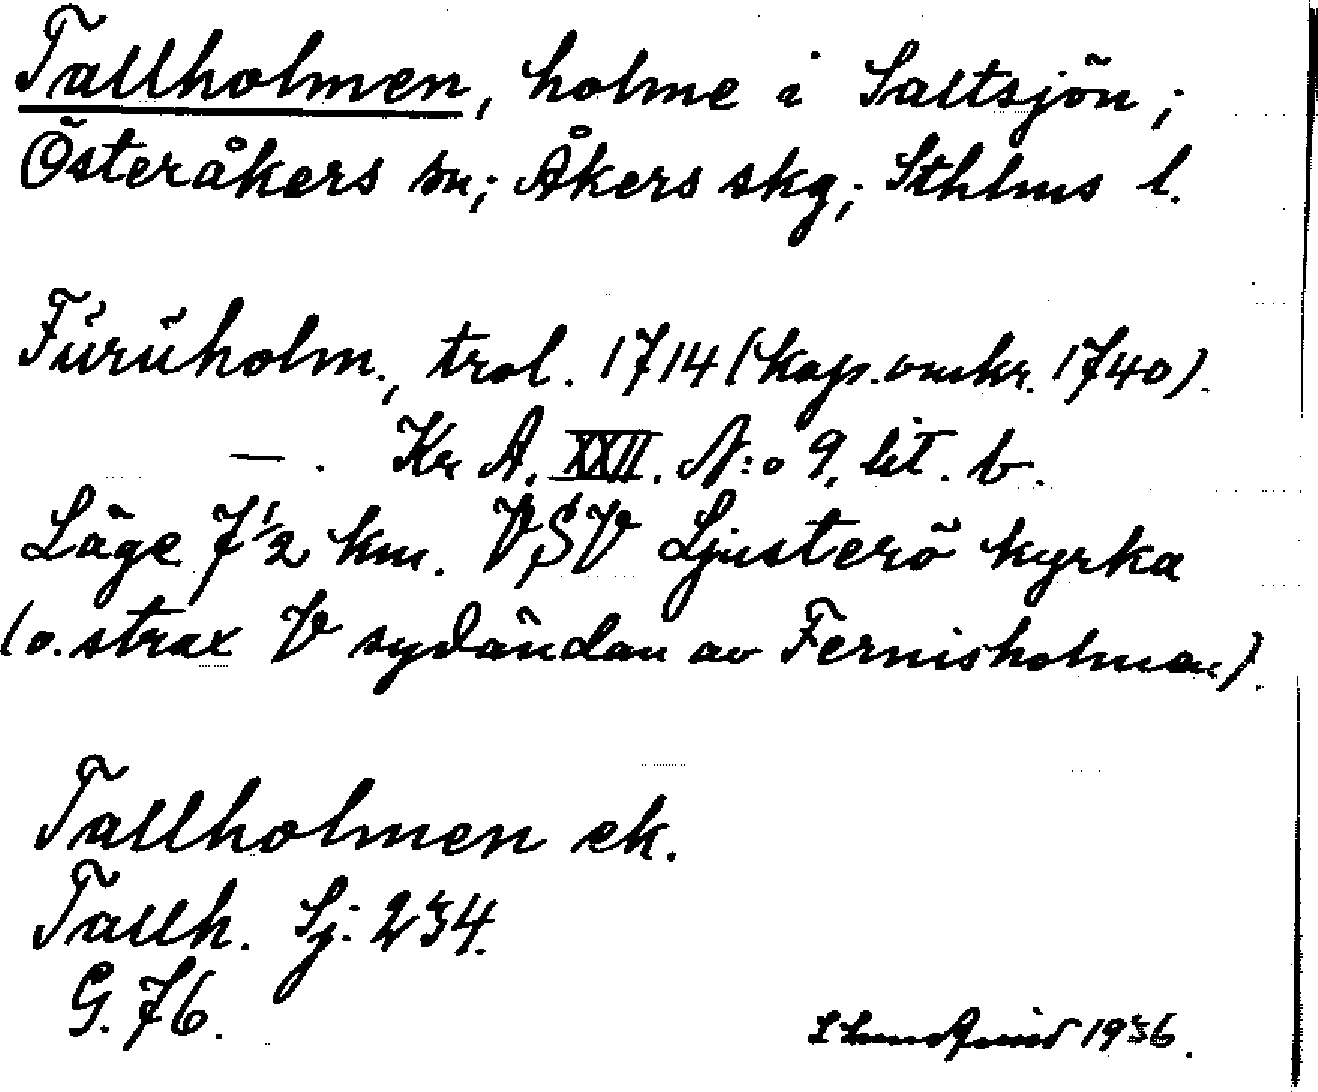 Tallholmen, holme i Saltsjön;
Österåkers sn; Åkers skg; Sthlms l.
Furuholm, trol. 1714 (kop. omkr. 1740).
— . Kr A. XXII. N:o 9. lit. b.
Läge 7 1/2 km. VSV Ljusterö kyrka
(o. strax V sydändan av Fernisholman).
Tallholmen ek.
Tallh. Sj: 234.
G. 76.
S Lundqvist 1936.